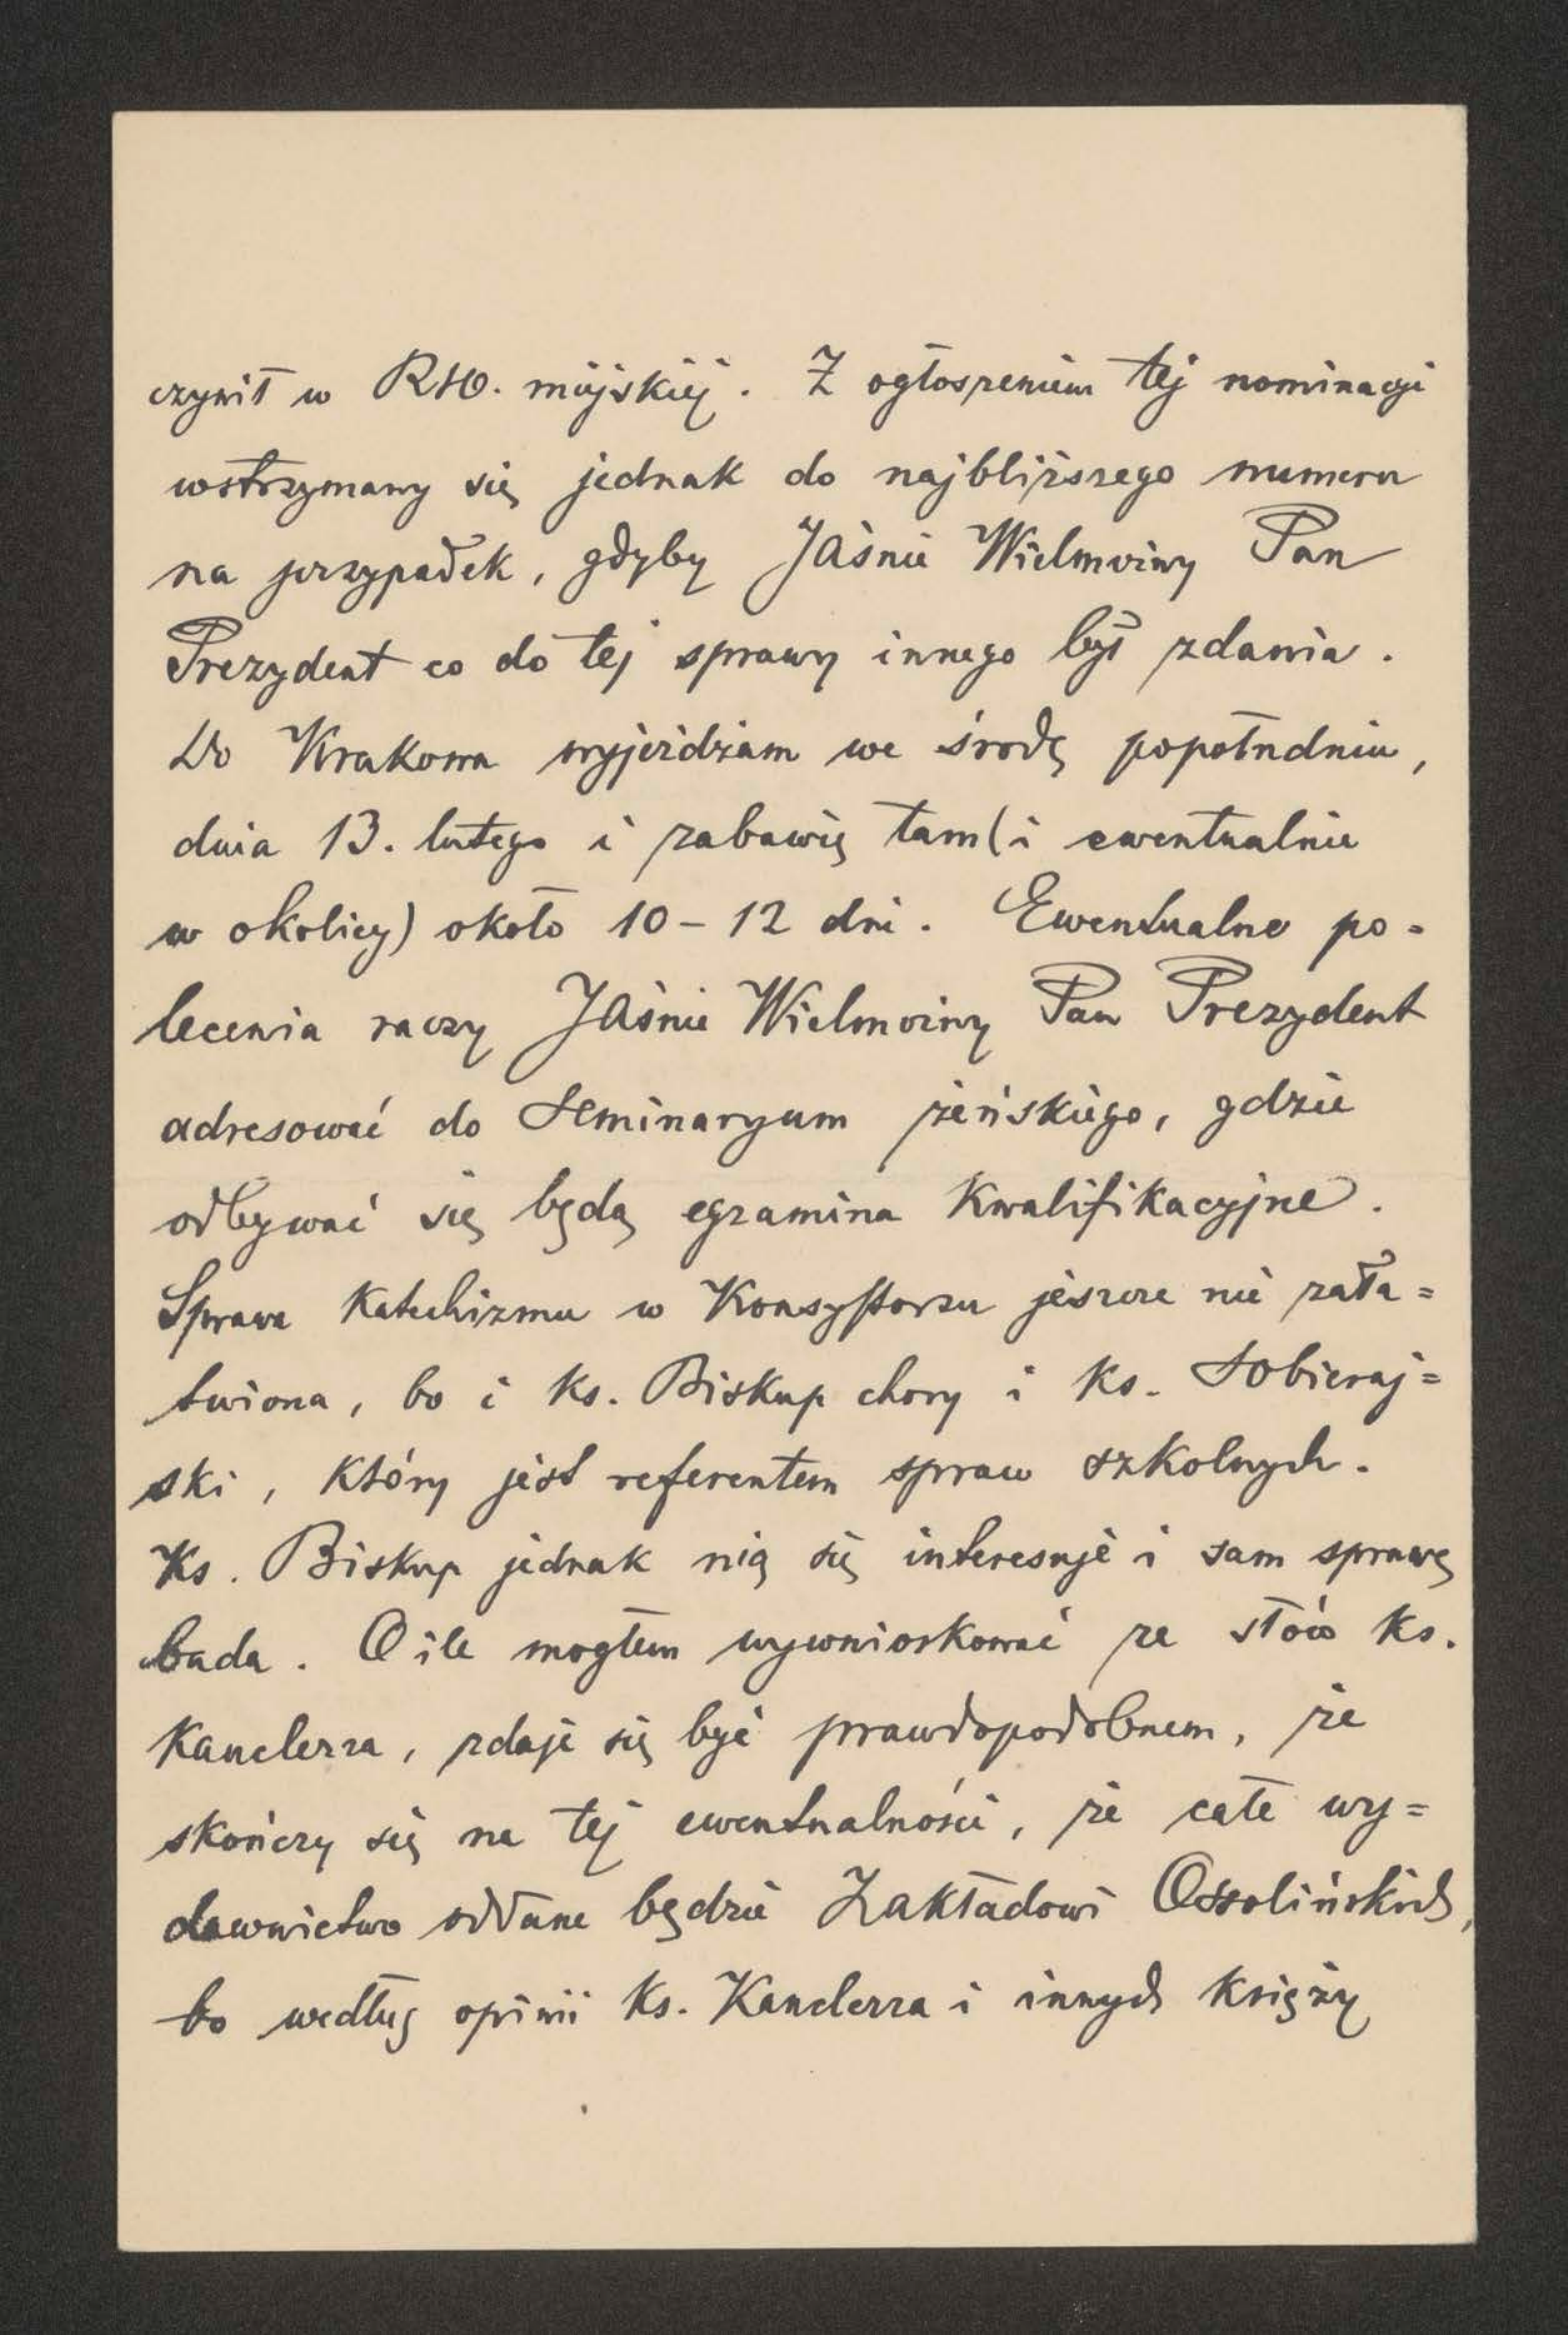 czynił w RSO. miejskiej. Z ogłoszeniem tej nominacyi
wstrzymany się jednak do najbliższego numeru
na przypadek, gdyby Jaśnie Wielmożny Pan
Prezydent co do tej sprawy innego był zdania.
Do Krakowa wyjeżdżam we środę popołudniu,
dnia 13. lutego i zabawię tam (i ewentualnie
w okolicy) około 10-12 dni. Ewentualne po-
lecenia raczy Jaśnie Wielmożny Pan Prezydent
adresować do Seminaryum żeńskiego, gdzie
odbywać się będą egzamina kwalifikacyjne.
Sprawa Katechizmu w Konsystorzu jeszcze nie zała=
twiona, bo i ks. Biskup chory i ks. Sobieraj=
ski, który jest referentem spraw szkolnych.
Ks. Biskup jednak nią się interesuje i sam sprawę
bada. O ile mogłem wywnioskować ze słów ks.
Kanclerza, zdaje się być prawdopodobnem, że
skończy się na tej ewentualności, że całe wy=
dawnictwo oddane będzie Zakładowi Ossolińskich,
bo według opinii ks. Kanclerza i innych księży